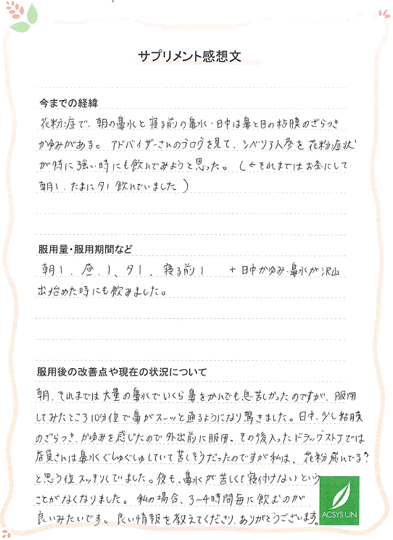 サプリメント感想文
今までの経緯
花粉症で、朝の鼻水と寝る前の鼻水・日中は鼻と目の粘膜のざらつき
かゆみがある。アドバイザーさんのブログを見て、シベリア人参を花粉症状
が特に強い時にも飲んでみようと思った。(←それまではお茶にして
朝1、たまに夕1飲んでいました)
服用量・服用期間など
朝1、昼1、夕1、寝る前1 +日中かゆみ・鼻水が沢山
出始めた時にも飲みました。
服用後の改善点や現在の状況について
朝、それまでは大量の鼻水でいくら鼻をかんでも息苦しかったのですが、服用
してみたところ10分位で鼻がスーッと通るようになり驚きました。日中、少し粘膜
のざらつき、かゆみを感じたので外出前に服用。その後入ったドラッグストアでは
店員さんは鼻水ぐしゅぐしゅしていて苦しそうだったのですが私は、花粉飛んでる?
と思う位スッキリしていました。夜も、鼻水が苦しくて寝付けないという
ことがなくなりました。私の場合、3~4時間毎に飲むのが
良いみたいです。良い情報を教えてくださり、ありがとうございます。
ACSYSUN